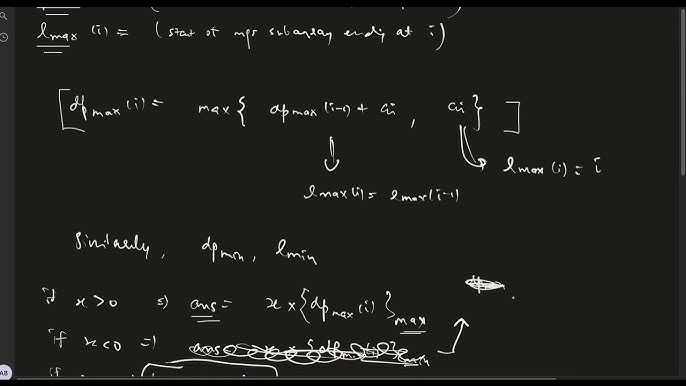 l max (i) = (start of mps subarray ending at i)
[ dp max (i) = max { dp max (i-1) + ai , ai } ]
l max (i) = i
l max (i) = l max (i-1)
Similarly, dp min, l min
if x > 0 => ans = x × { dp max (i) } max
if x < 0 =>
if
AB